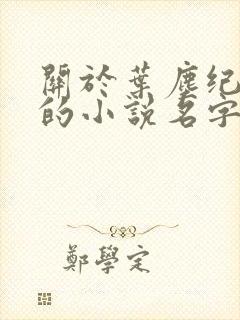 關於葉塵纪
的小說名字
鄭學定